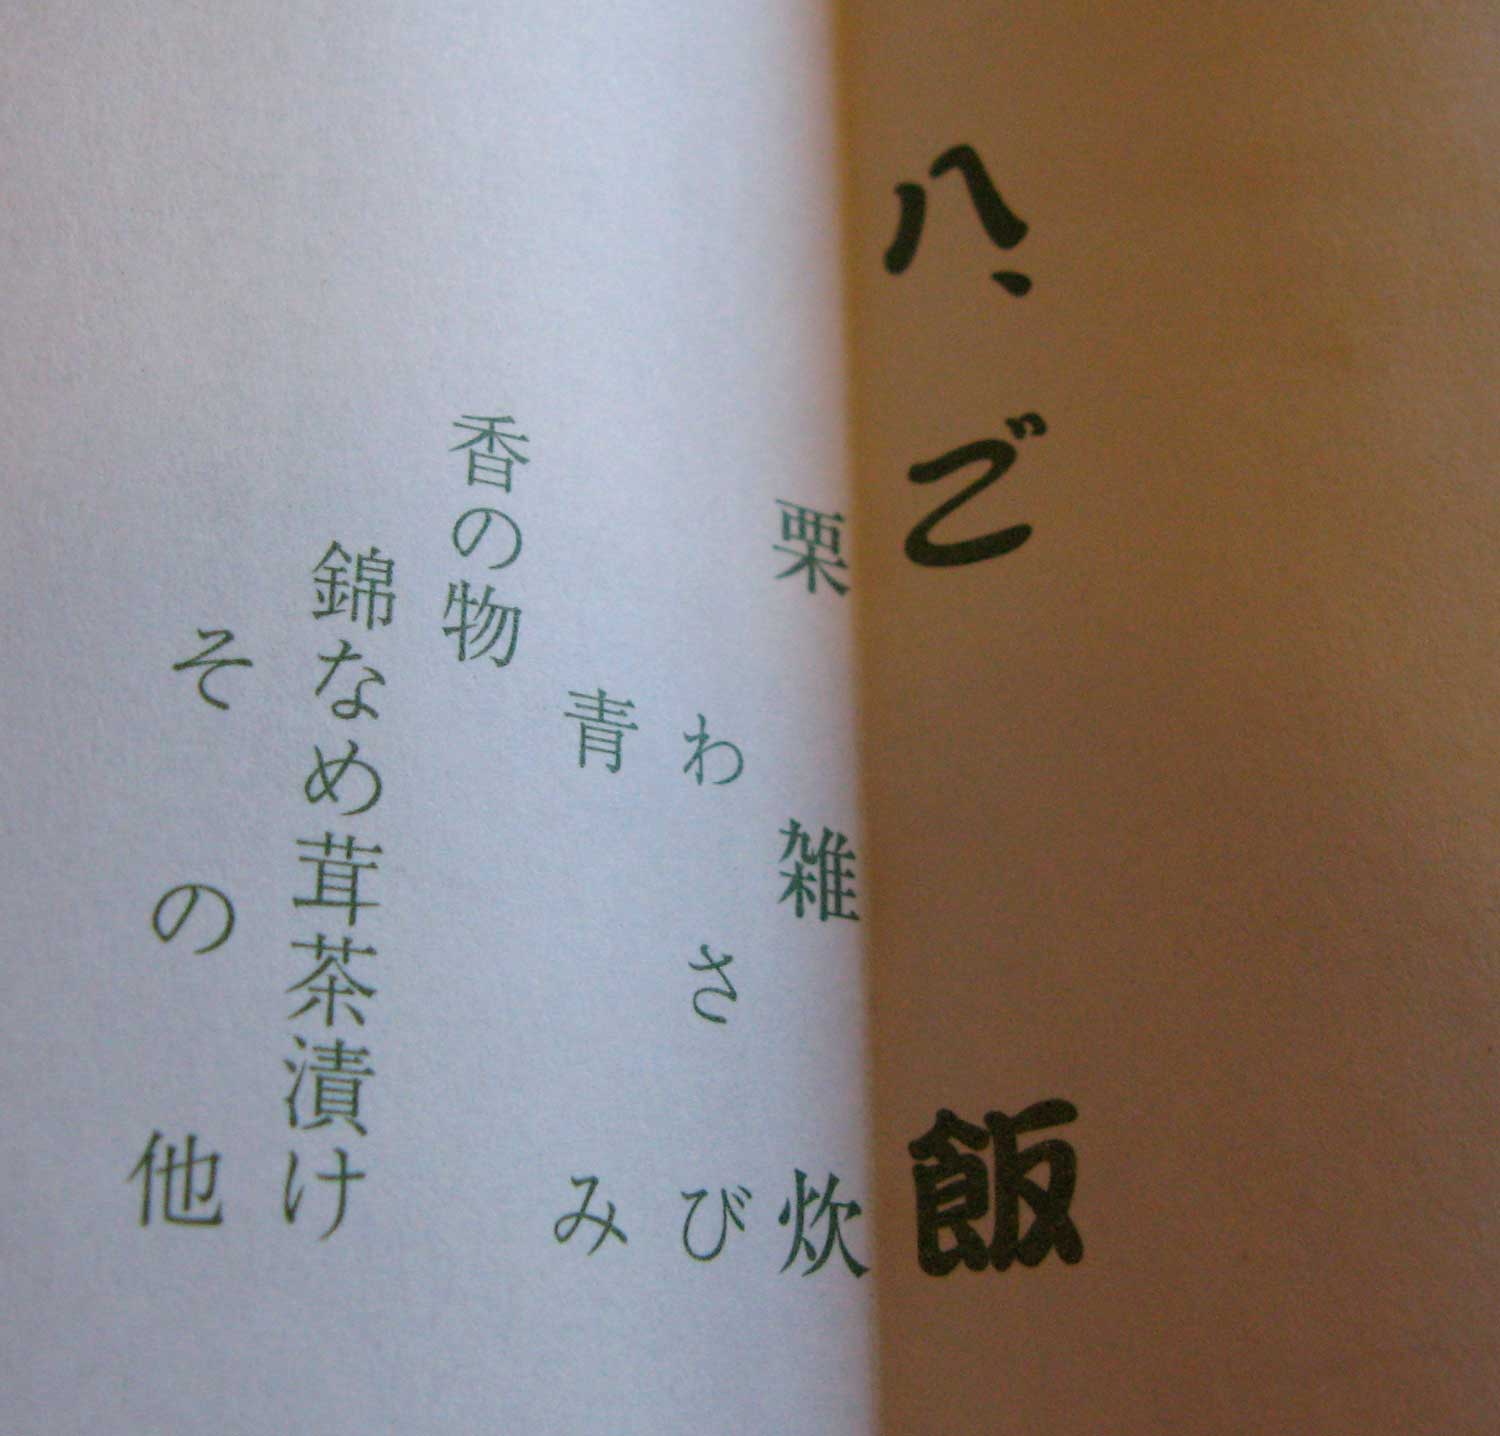 八、ご飯
栗雑炊
わさび
青み
香の物
錦なめ茸茶漬け
その他